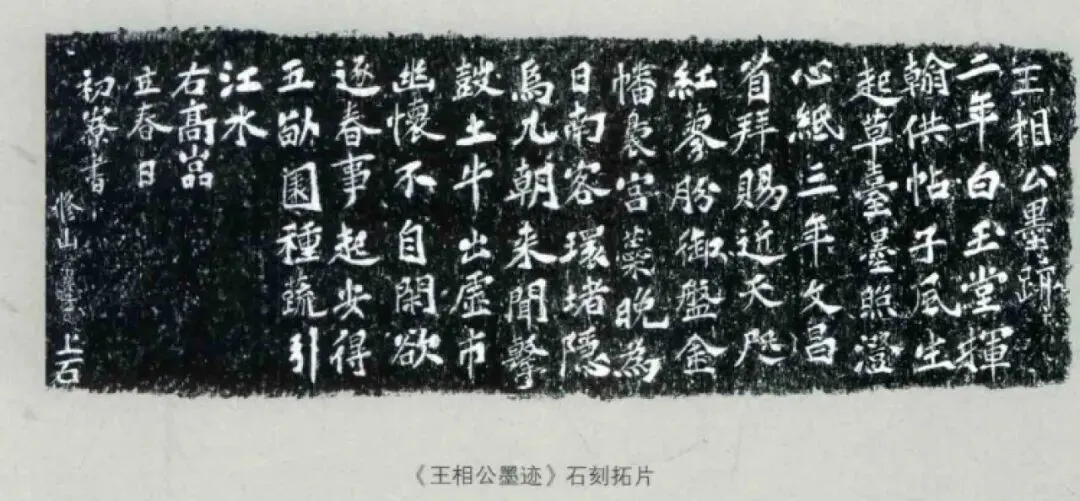 王相公墨跡
二年白玉堂揮
翰供帖子風生
起草臺墨照澄
心紙三年文昌
省拜賜近天咫
紅蓼勝御盤金
幡裊宮蘂晚為
日南客環堵隱
烏几朝来聞擊
鼓土牛出虛市
幽懷不自閑欲
逐春事起安得
五畝園種蔬引
江水
右高嵓
立春日
初寮書
修山 上石
《王相公墨迹》石刻拓片